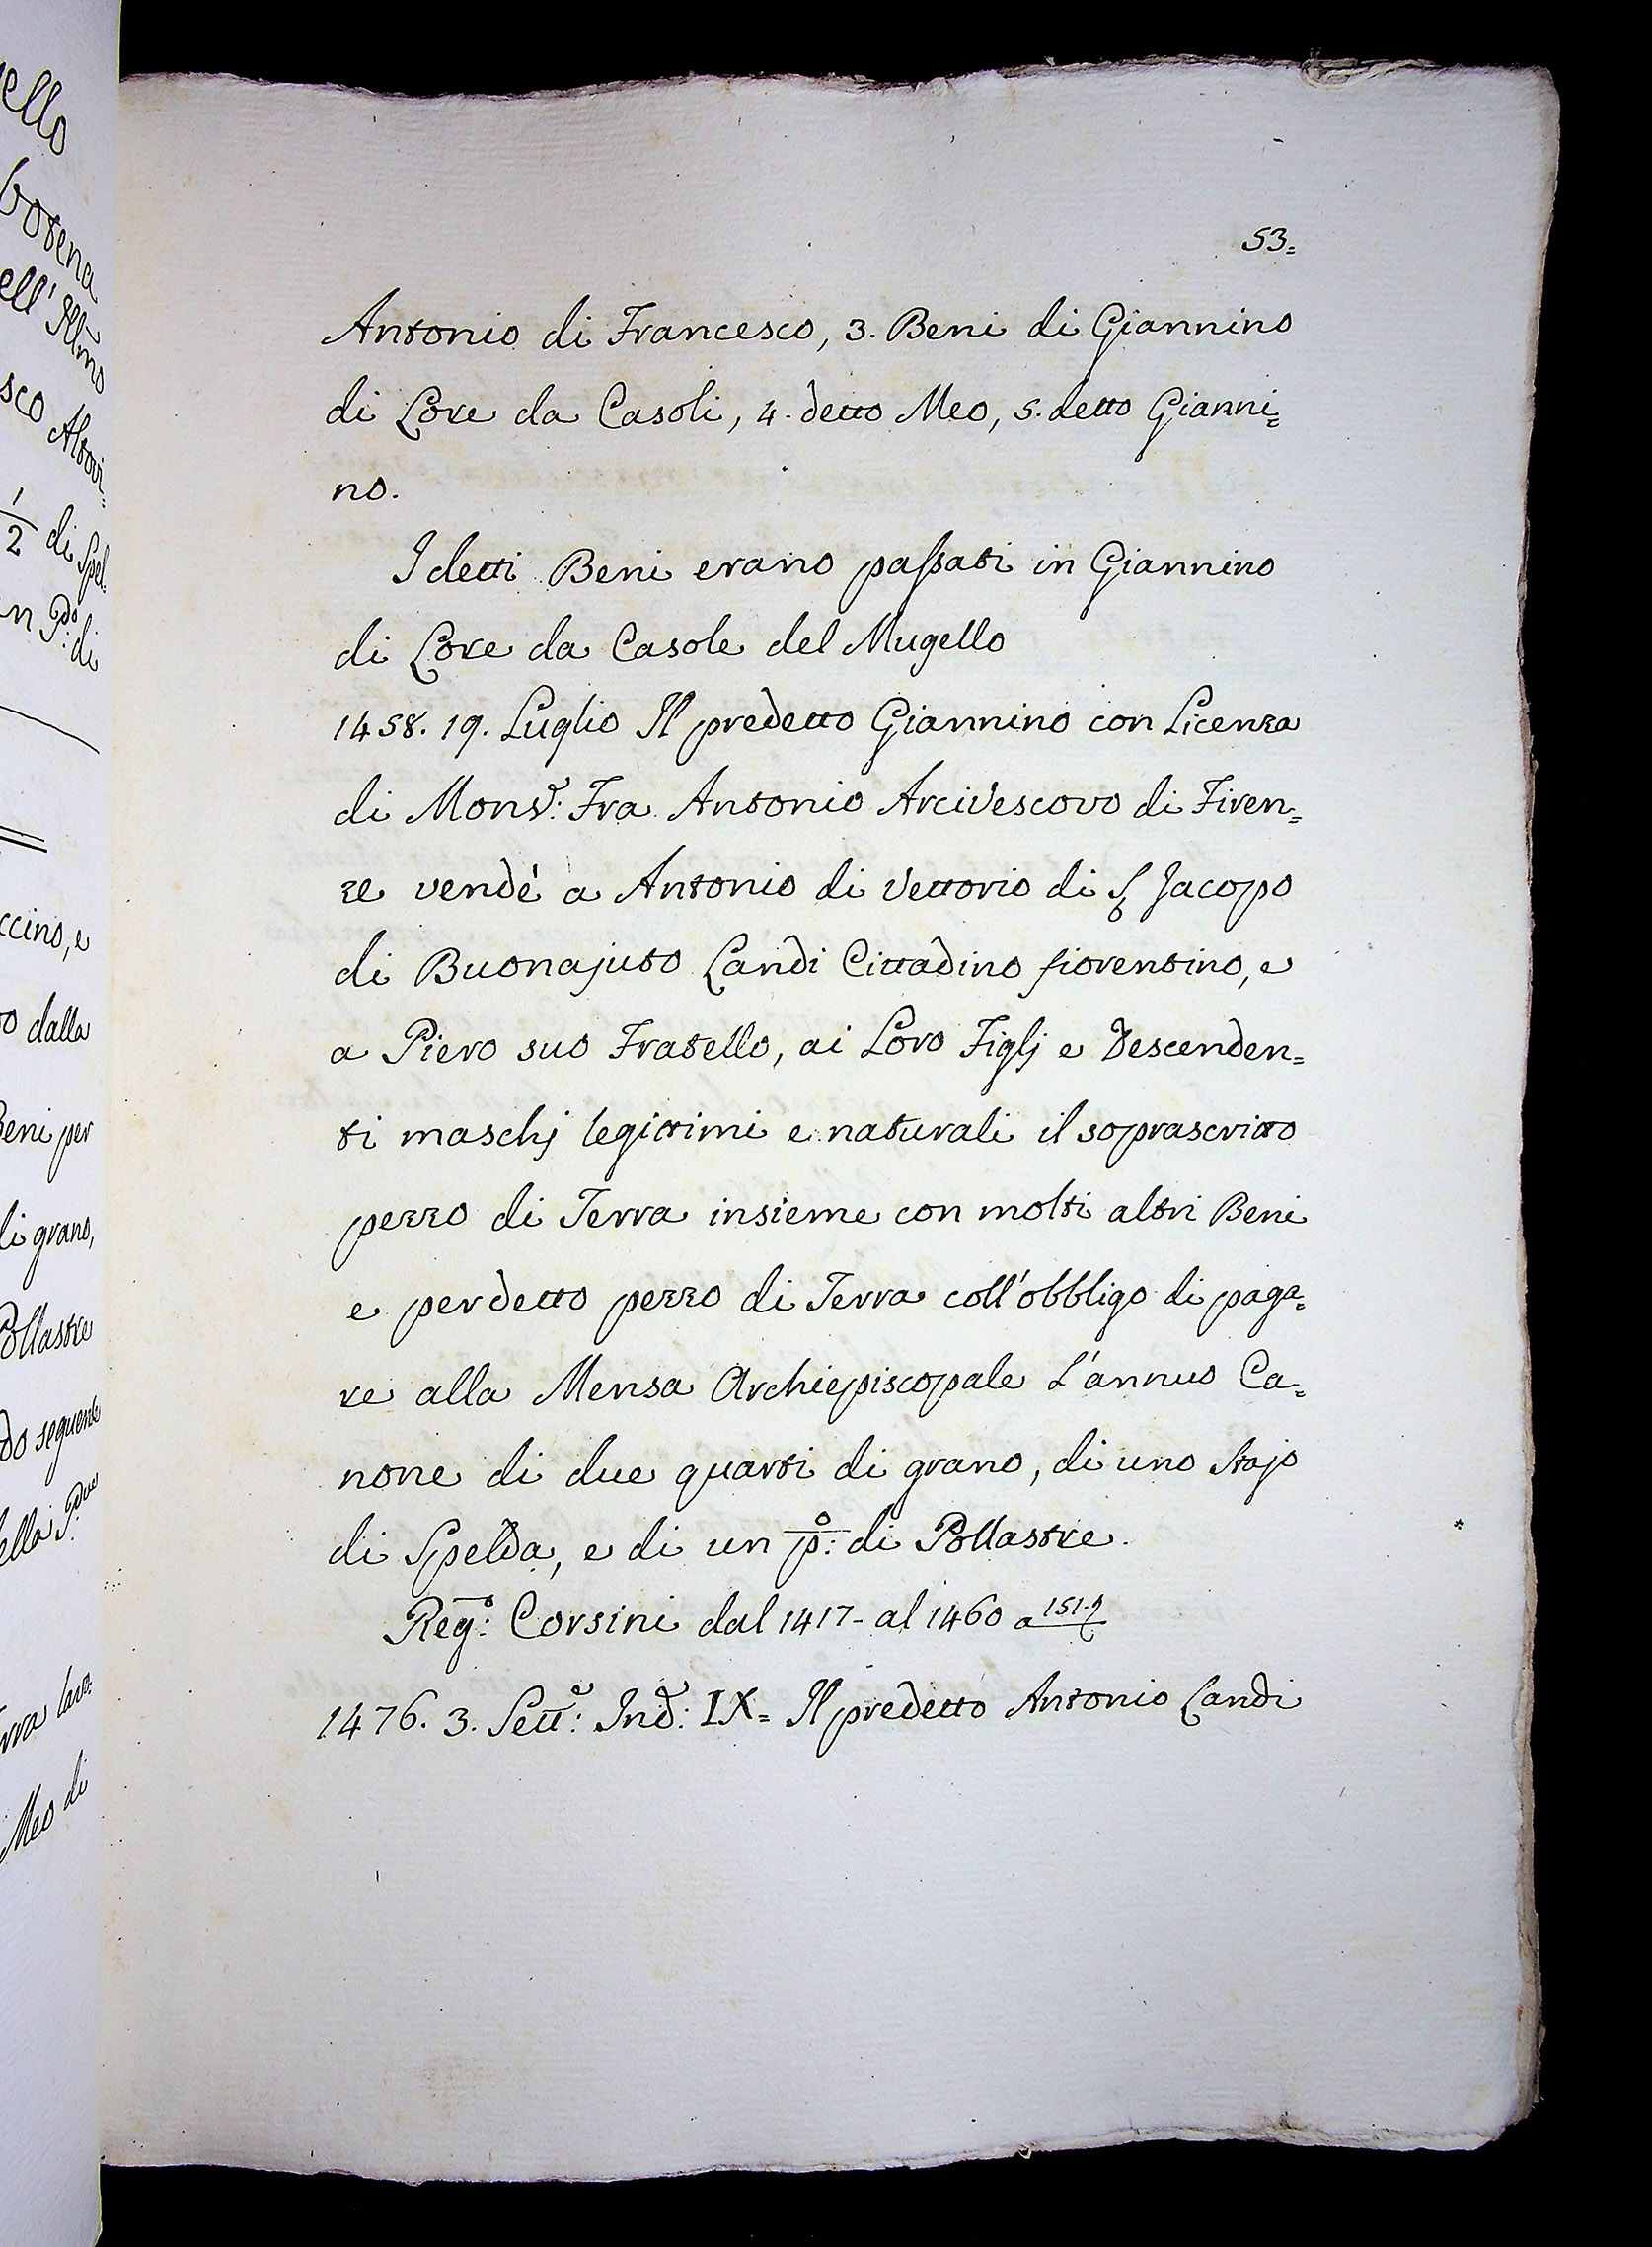 53=
Antonio di Francesco, 3. Beni di Giannino
di Lore da Casoli, 4. detto Meo, 5. detto Gianni=
no.
I detti Beni erano passati in Giannino
di Lore da Casole del Mugello
1458. 19. Luglio Il predetto Giannino con Licenza
di Monsr: Fra Antonio Arcivescovo di Firen=
ze vendé a Antonio di Vettorio di S. Jacopo
di Buonajuto Landi Cittadino fiorentino, e
a Piero suo Fratello, ai Loro Figlj e Descenden=
ti maschj legittimi e naturali il soprascritto
pezzo di Terra insieme con molti altri Beni
e per detto pezzo di Terra coll'obbligo di paga=
re alla Mensa Archiepiscopale L'annuo Ca=
none di due quarti di grano, di uno Stajo
di Spelda, e di un po: di Pollastre.
Rego: Corsini dal 1417- al 1460 a 151.
1476. 3. Sette: Inde: IX= Il predetto Antonio Landi
ello
ell' Illmo
sco Altovi=
1/2 di Spel=
n Po: di
ccino, e
o dalla
Beni per
di grano,
Pollastre
do seguente
ella
rra lavo:
Meo di